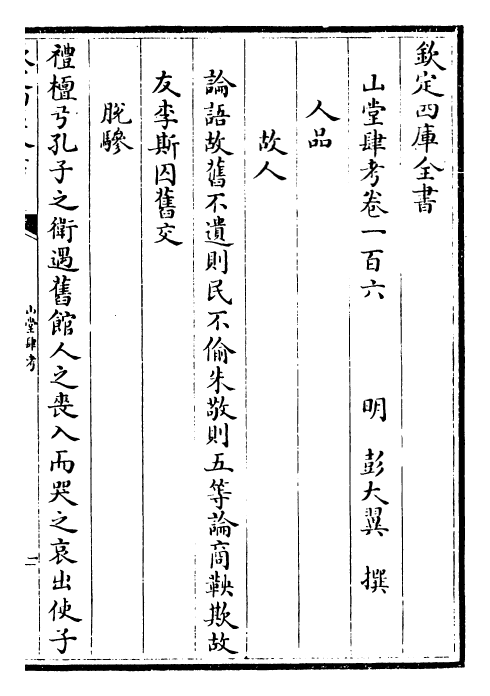 欽定四庫全書
山堂肆考卷一百六　明　彭大翼　撰
人品
故人
論語故舊不遺則民不偷朱敬則五等論商鞅欺故
友李斯囚舊交
脫驂
禮檀弓孔子之衛遇舊館人之喪入而哭之哀出使子
山堂肆考
一